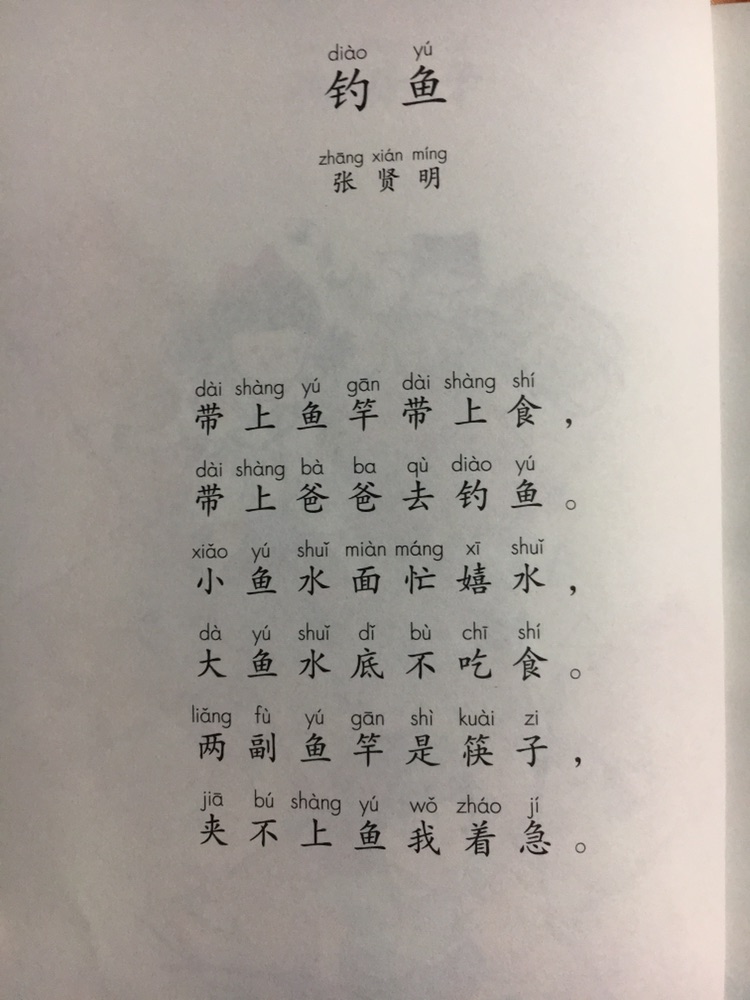 diào yú
钓鱼
zhāng xián míng
张贤明
dài shàng yú gān dài shàng shí
带上鱼竿带上食，
dài shàng bà ba qù diào yú
带上爸爸去钓鱼。
xiǎo yú shuǐ miàn máng xī shuǐ
小鱼水面忙嬉水，
dà yú shuǐ dǐ bù chī shí
大鱼水底不吃食。
liǎng fù yú gān shì kuài zi
两副鱼竿是筷子，
jiā bú shàng yú wǒ zháo jí
夹不上鱼我着急。